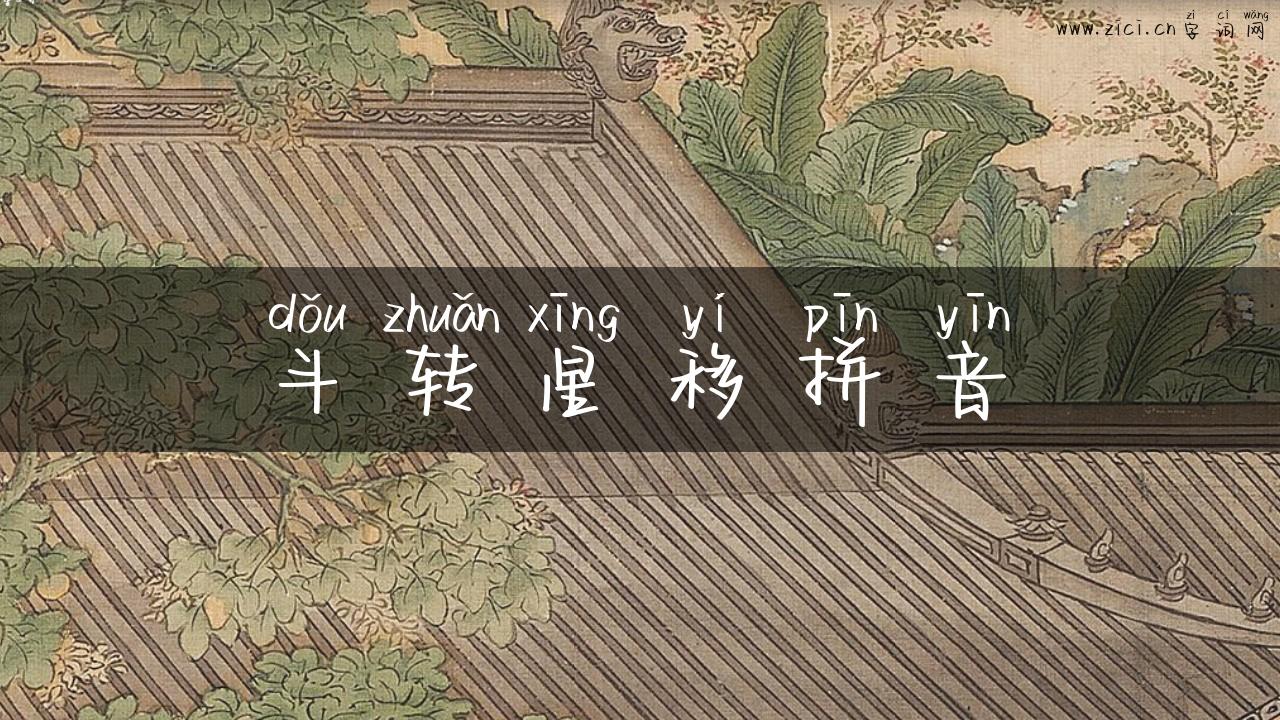 zì cí wǎng
www.zici.cn 字词网
dǒu zhuǎn xīng yí pīn yīn
斗转星移拼音